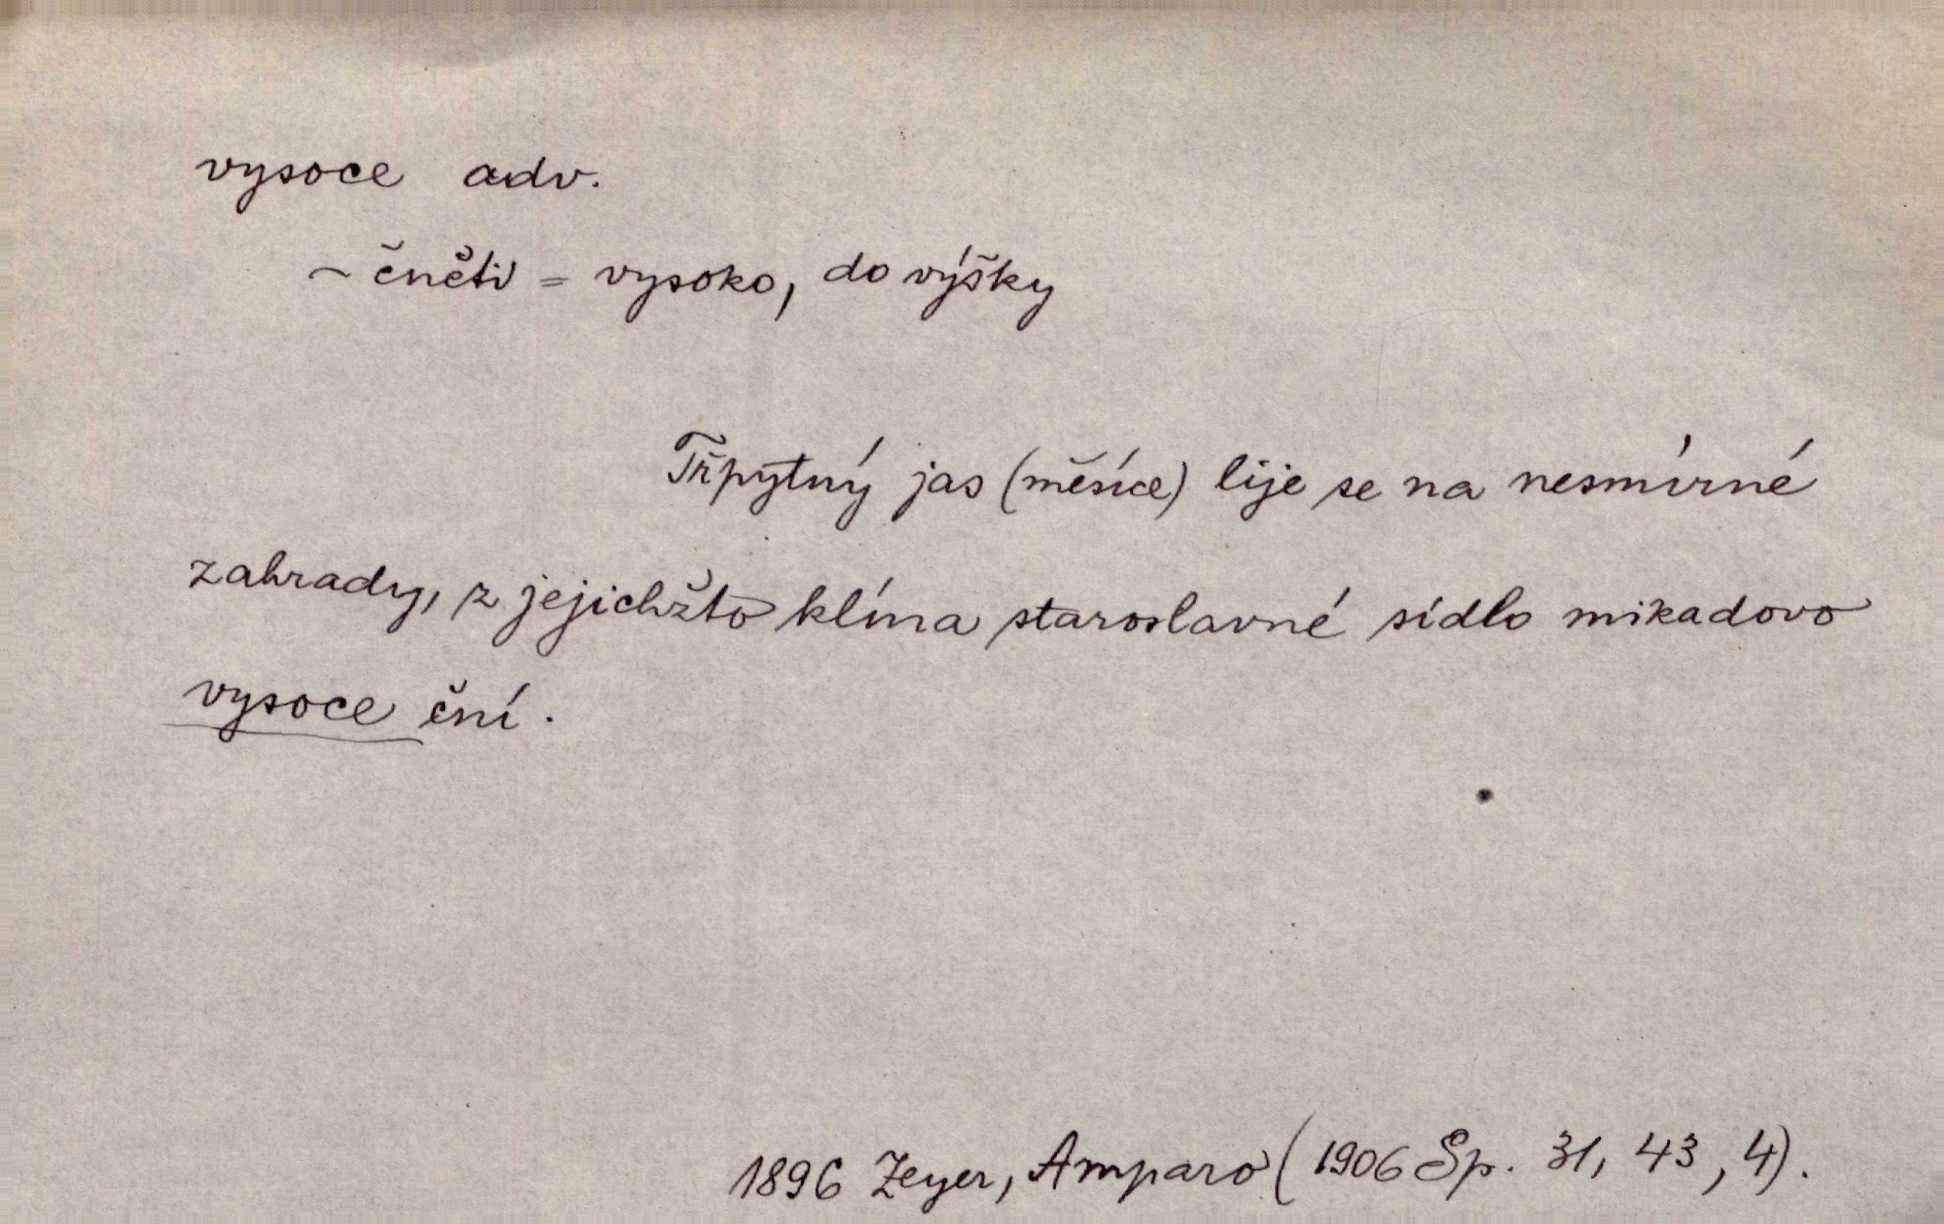 vysoce adv.
~ čněti = vysoko, do výšky
Třpytný jas (měsíce) lije se na nesmírné
zahrady, z jejichžto klína staroslavné sídlo mikadovo
vysoce ční.
1896 Zeyer, Amparo (1906 Sp. 31, 43, 4).